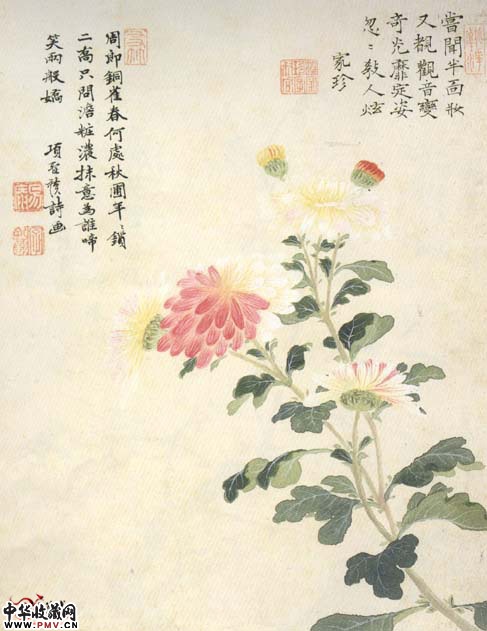 嘗聞半面妝
又覩觀音變
奇光靡定姿
忽〻教人炫
家珍
周郎銅雀春何處秋圃年〻鎖
二喬只問澹粧濃抹意為誰啼
笑兩般嬌
項聖謨詩画
中华收藏网
WWW.PMV.CN